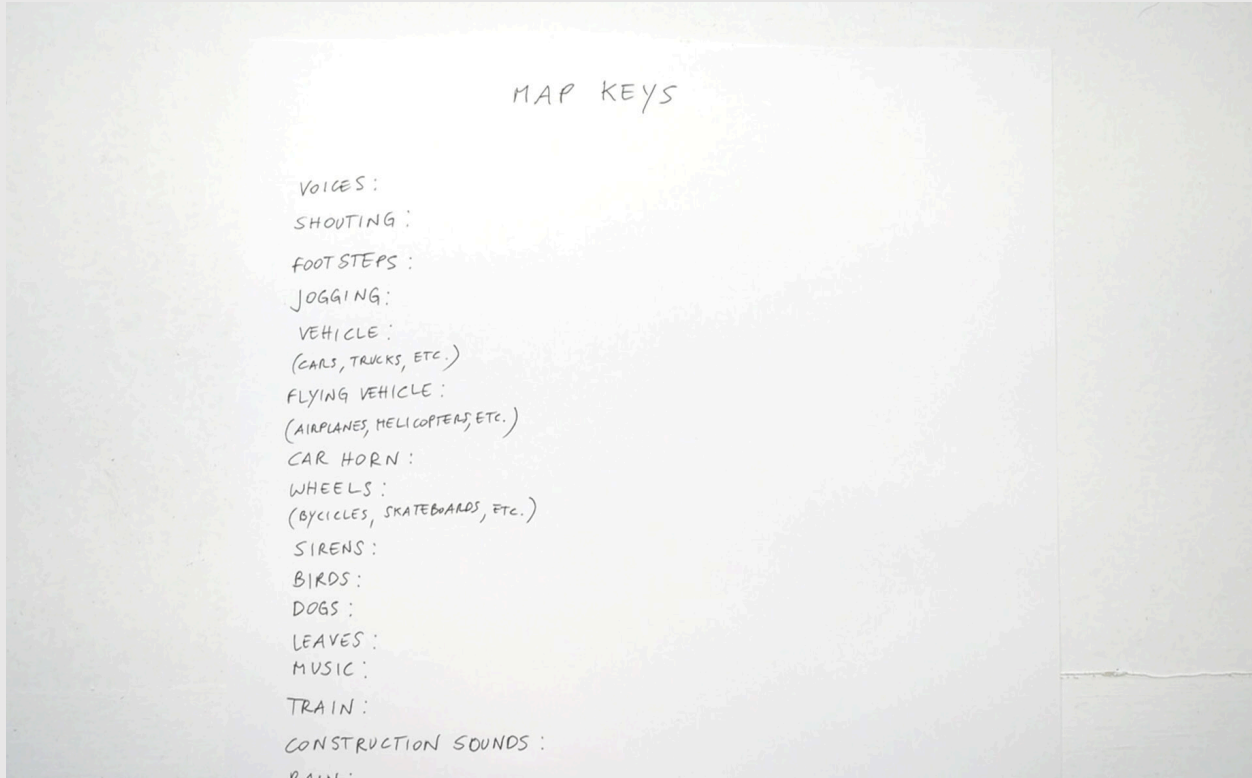 MAP KEYS
VOICES:
SHOUTING:
FOOTSTEPS:
JOGGING:
VEHICLE:
(CARS, TRUCKS, ETC.)
FLYING VEHICLE:
(AIRPLANES, HELICOPTERS, ETC.)
CAR HORN:
WHEELS:
(BYCICLES, SKATEBOARDS, ETC.)
SIRENS:
BIRDS:
DOGS:
LEAVES:
MUSIC:
TRAIN:
CONSTRUCTION SOUNDS: